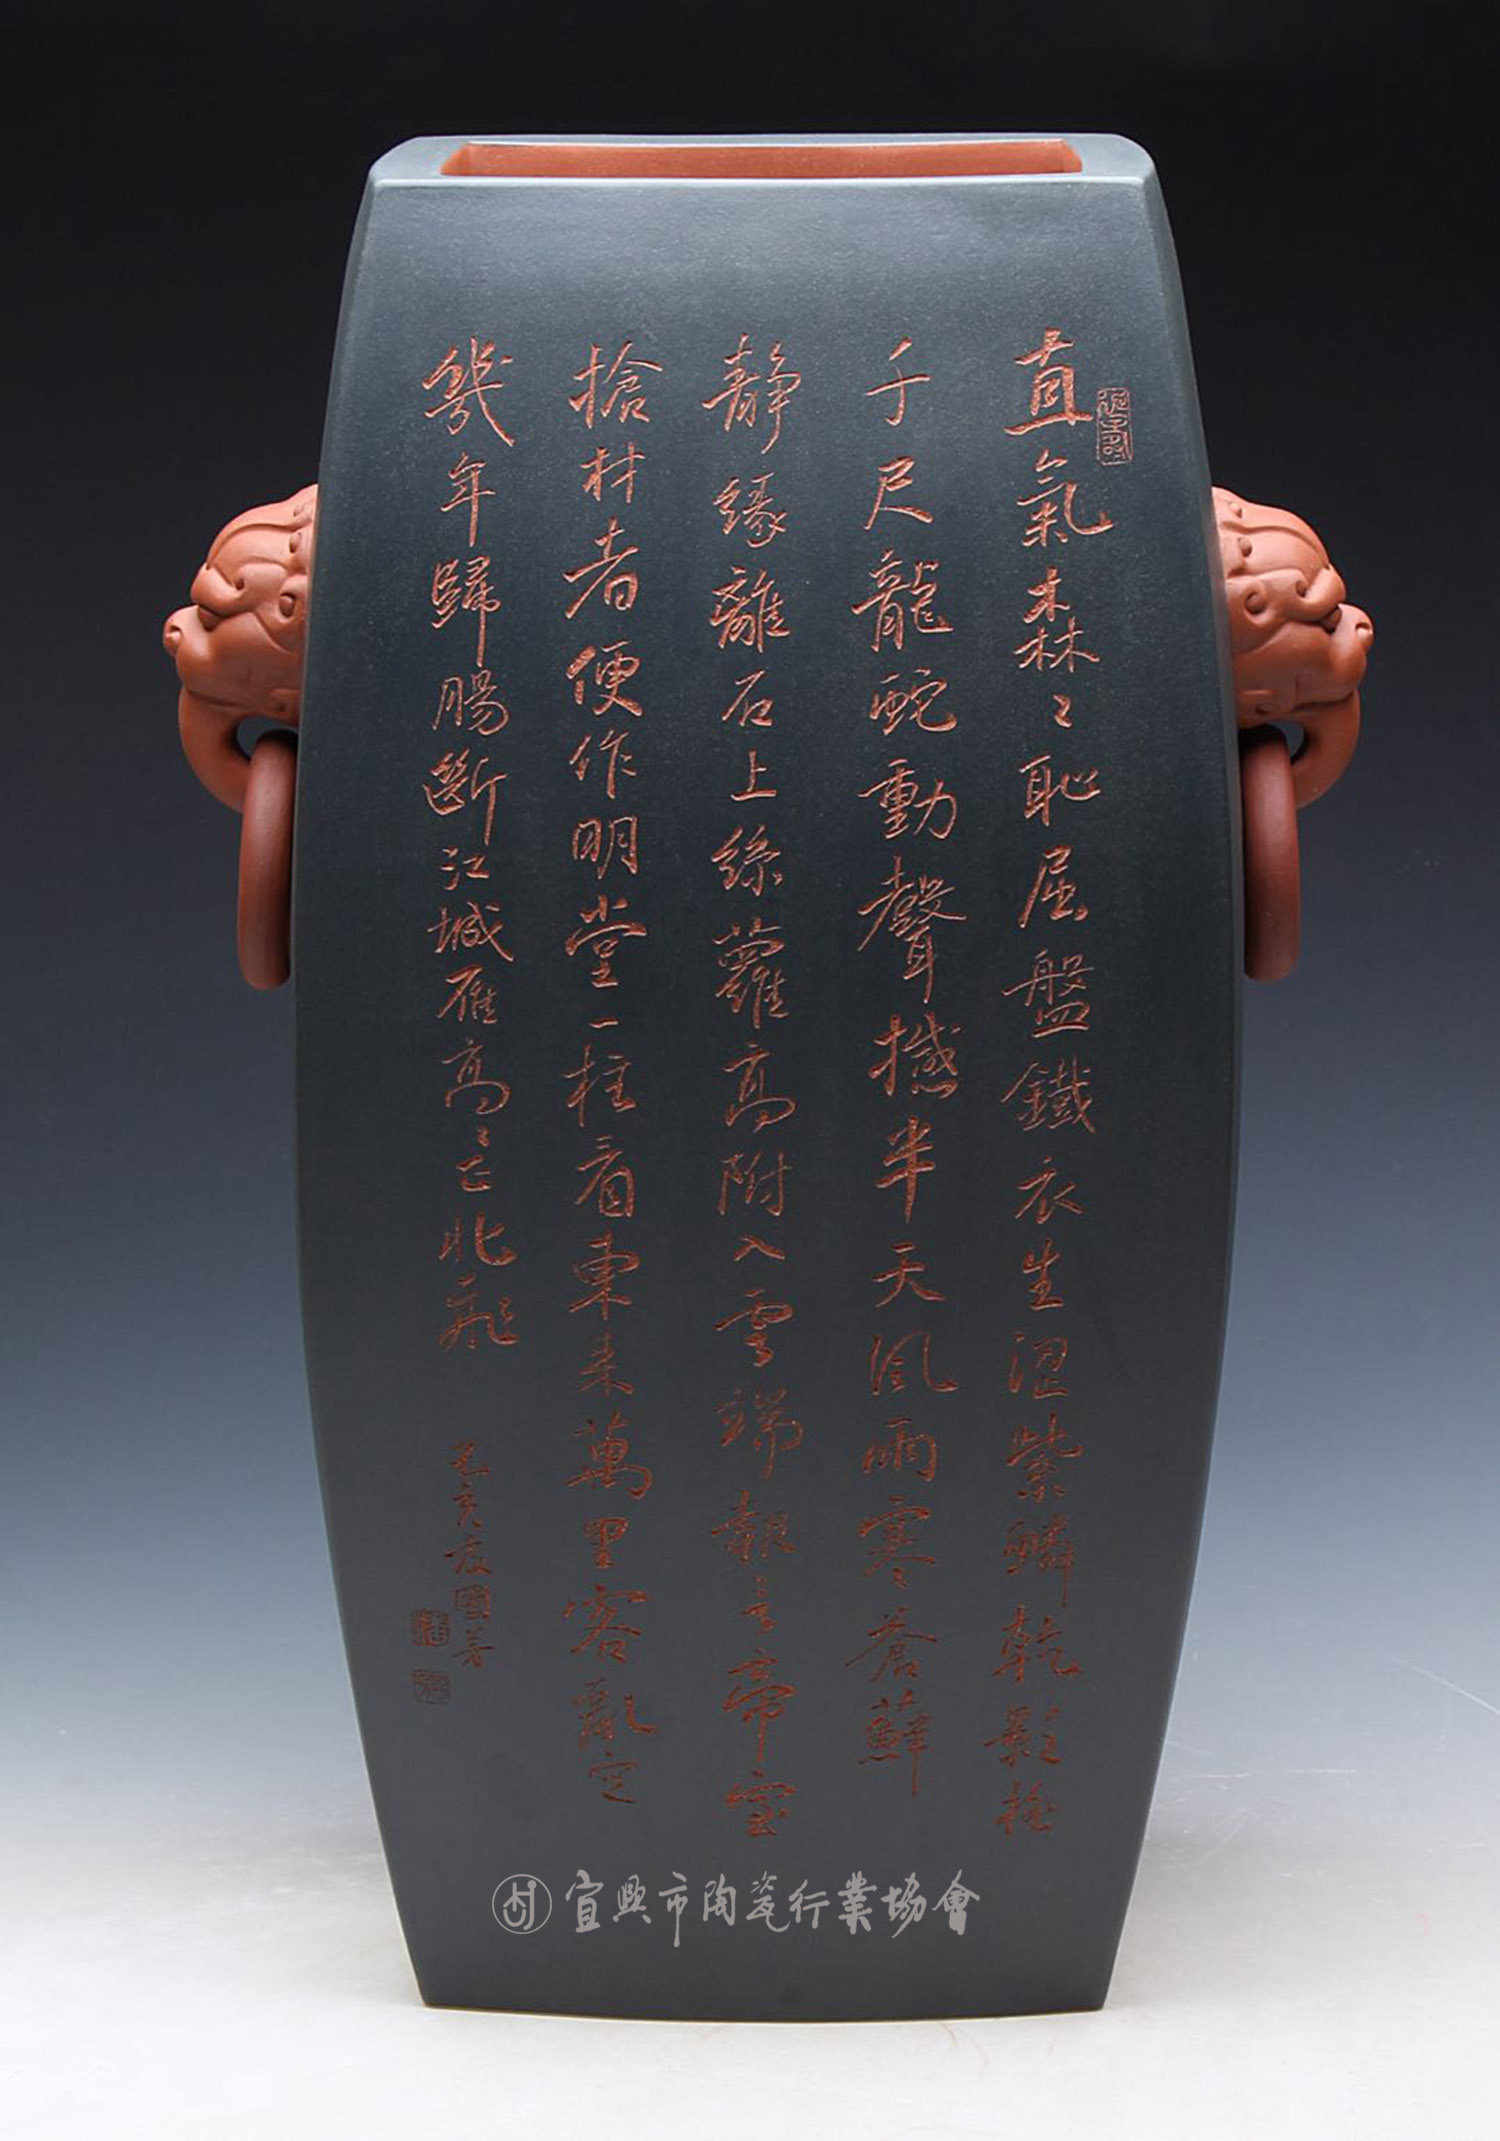 直氣森〻恥屈盤鐵衣生澀紫鱗乾影搖
千尺龍蛇動聲撼半天風雨寒蒼蘚
靜緣離石上絲蘿高附入雲端報言帝室
搶材者便作明堂一柱看東來萬里客亂定
幾年歸腸斷江城雁高〻正北飛
己亥夏國芳
宜興市陶瓷行業協會